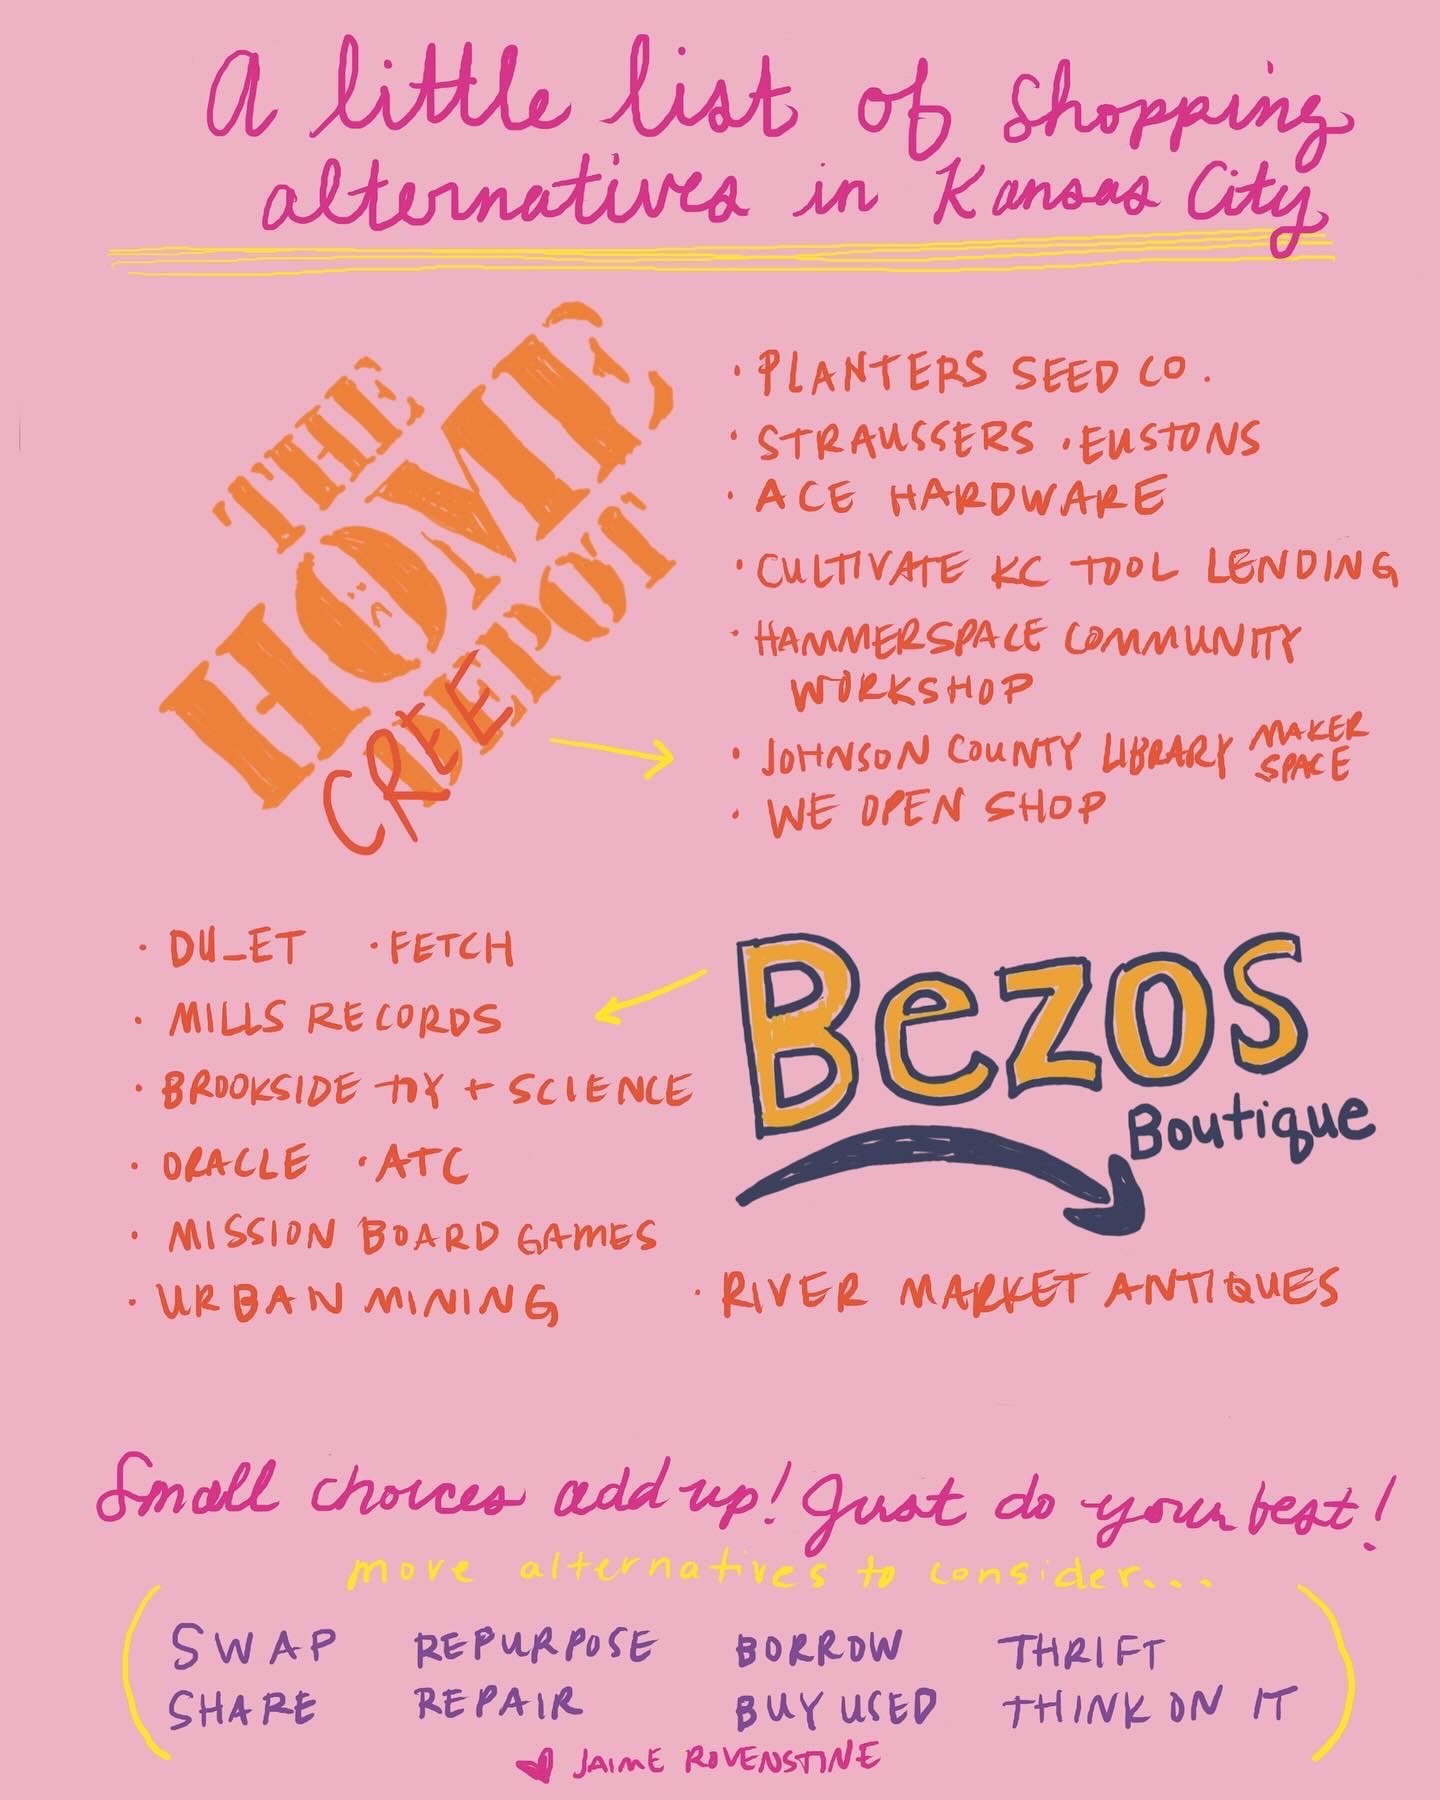 A little list of Shopping
alternatives in Kansas City
THE
HOME
DEPOT
CREE
· PLANTERS SEED CO.
· STRAUSSERS · EUSTONS
· ACE HARDWARE
· CULTIVATE KC TOOL LENDING
· HAMMERSPACE COMMUNITY
WORKSHOP
· JOHNSON COUNTY LIBRARY MAKER
SPACE
· WE OPEN SHOP
· DU_ET · FETCH
· MILLS RECORDS
· BROOKSIDE TOY + SCIENCE
· ORACLE · ATC
· MISSION BOARD GAMES
· URBAN MINING · RIVER MARKET ANTIQUES
Bezos
Boutique
Small choices add up! Just do your best!
more alternatives to consider...
SWAP REPURPOSE BORROW THRIFT
SHARE REPAIR BUY USED THINK ON IT
♥ JAIME ROVENSTINE